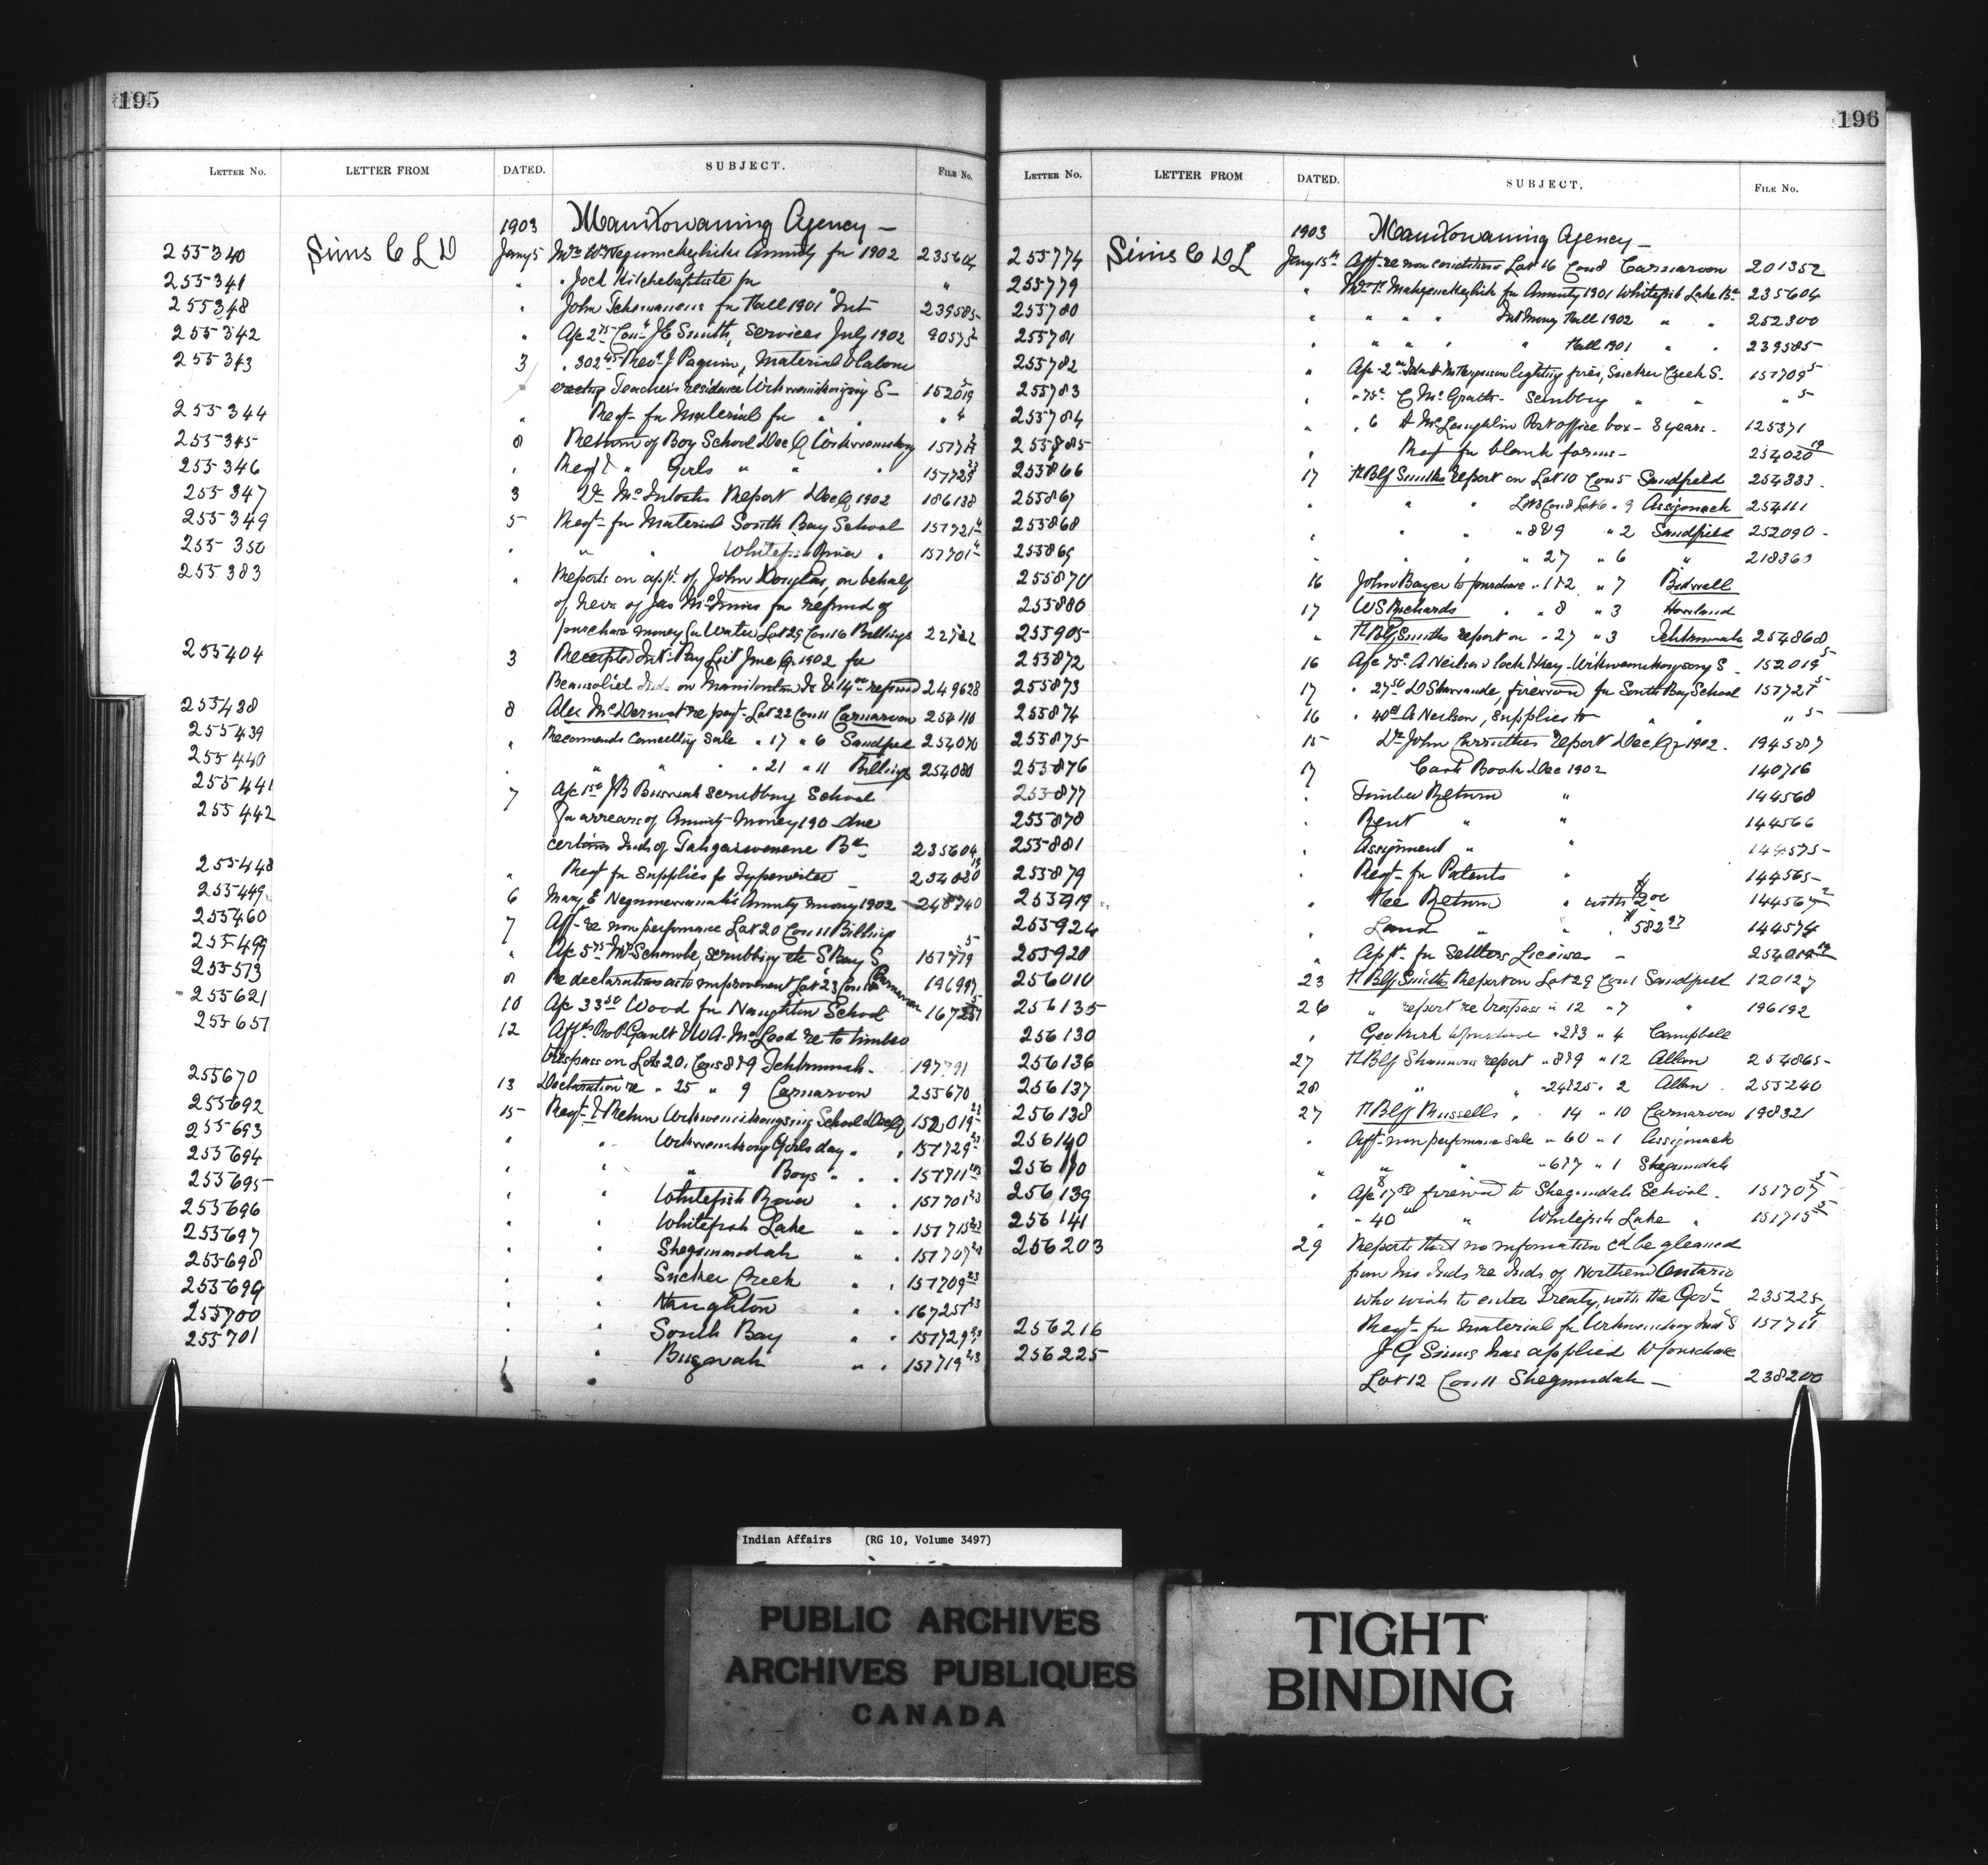 195
LETTER NO. LETTER FROM DATED. SUBJECT. FILE NO.
1903 Manitowaning Agency —
255340 Sims C L D Jany 5 Annuity for 1902 235604
255341 " " Jock Kitchebaptiste for "
255348 " John for Fall 1901 Int 239585
255342 " Apc 2 75 J E Smith, Services July 1902 90575
255343 3 " 302 45 Revd J Paquin, Material & labour
erecting Teachers residence Wikwemikongsing S— 152019 5
255344 " Reqt for Material for " " " 4
255345 8 Return of Boy School Dec Q Wikwemikong
255346 " Reqt & " Girls " " " 157729 23
255347 3 Dr McIntosh Report Dec Q 1902 186138
255349 5 Reqt for Material South Bay School 157721 4
255350 " " " Whitefish River " 157701 4
255383 " Reports on appn of John Douglas, on behalf
of heirs of Jas McInnis for refund of
purchase money for Water Lot 29 Con 16 Billings
255404 3 Receipted Int Pay List June Q 1902 for
Beausoliel Inds on Manitoulin Is & 14 00 refund 249628
255438 8 Alex McDermot re payt Lot 22 Con 11 Carnarvon 254110
255439 " Recommends Cancelling Sale " 17 " 6 Sandfield 254070
255440 " " " " 21 " 11 Billings 254080
255441 7 Apc 1 50 J B scrubbing School
255442 For arrears of Annuity Money 190 due
certain Inds of Tahgaiwenene Bd 235604
255448 " Reqt for Supplies for Typewriter — 254020 13
255449 6 Mary E Annuity money 1902 248740
255460 7 Aff re non performance Lot 20 Con 11 Billings
255499 " Apc 5 75 scrubbing etc S Bay S
255513 8 Re declaration as to improvement Lot 23 Con Carnarvon
255621 10 Apc 33 50 Wood for Naughton School
255651 12 Affts Robt Gault & W A McLeod re to timber
trespass on Lots 20, Cons 8 & 9 Tehkummah — 197791
255670 13 Declaration re " 25 " 9 Carnarvon 255670
255692 15 Reqt & Return Wikwemikongsing School Dec Q 152019 23
255693 " " Wikwemikong Girls day " " 157729 23
255694 " " " Boys " " " 157711 23
255695 " " Whitefish River " " 157701 23
255696 " " Whitefish Lake " " 157715 23
255697 " " Sheguiandah " " 157707 23
255698 " " Sucker Creek " " 157709 23
255699 " " Naughton " " 167251 23
255700 " " South Bay " " 157729 23
255701 " Buzwah " " 157719 23
196
LETTER NO. LETTER FROM DATED. SUBJECT. FILE NO.
1903 Manitowaning Agency —
255774 Sims C D L Jany 15th Aff re non conditions Lot 16 Con 8 Carnarvon 201352
255779 " for Annuity 1901 Whitefish Lake Bd 235604
255780 " " " " Int Money Fall 1902 " " 252300
255781 " " " " " Fall 1901 " " 239585
255782 " Apc 2 00 lighting fires, Sucker Creek S. 157709 5
255783 " " 75c C McGrath — Scrubbing " " " 5
255784 " " 6 A McLaughlin Post office box — 3 years — 125371
255785 " Reqt for blank forms — 254020 19
255866 17 H Blf Smiths report on Lot 10 Con 5 Sandfield 254333
255867 " " " Lot 3 Con 8 Lot 6 " 9 Assiginack 254111
255868 " " " " 8 & 9 " 2 Sandfield 252090
255869 " " " " 27 " 6 " 218363
255870 16 John Bayer to purchase " 1 & 2 " 7 Bidwell
255880 17 W S Richards " " 8 " 3 Howland
255905 " H Blf Smiths report on " 27 " 3 Tehkummah 254868
255872 16 Apc 75c A Neilson lock & key — Wikwemikongsing S. 152019 5
255873 17 " 27 50 firewood for South Bay School 157721 5
255874 16 " 40c A Neilson, Supplies to " " " 5
255875 15 Dr John Carruthers report Dec Qr 1902 — 194587
255876 17 Cash Book Dec 1902 140716
255877 " Timber Return " 144568
255878 " Rent " " 144566
255881 " Assignment " " 144575
255879 " Reqt for Patents " 144565
255919 " Fee Return " with $200 144567 2
255924 " Land " " " $582 27 144574
255920 " Appt for Settlers Licenses — 254019
256010 23 H Blf Smiths Report on Lot 29 Con 1 Sandfield 120127
256135 26 " report re trespass " 12 " 7 " 196192
256130 " Geo Kirk to purchase " 2 & 3 " 4 Campbell
256136 27 H Blf Shannons report " 8 & 9 " 12 Allan 254865
256137 28 " " " 24 & 25 " 2 Allan 255240
256138 27 H Blf Russells " " 14 " 10 Carnarvon 198321
256140 " Aff non performance sale " 60 " 1 Assiginack
256110 " " " " 6 & 7 " 1 Sheguiandah
256139 " Apc 17 50 firewood to Sheguiandah School — 157707 5
256141 " " 40 00 " Whitefish Lake " 157715 5
256203 29 Reports that no information cd be gleaned
from his Inds re Inds of Northern Ontario
who wish to enter treaty, with the Govt 235225
256216 Reqt for material for Wikwemikong Ind S 157711 4
256225 J G Sims has applied to purchase
Lot 12 Con 11 Sheguiandah — 238200
Indian Affairs (RG 10, Volume 3497)
PUBLIC ARCHIVES
ARCHIVES PUBLIQUES
CANADA
TIGHT
BINDING